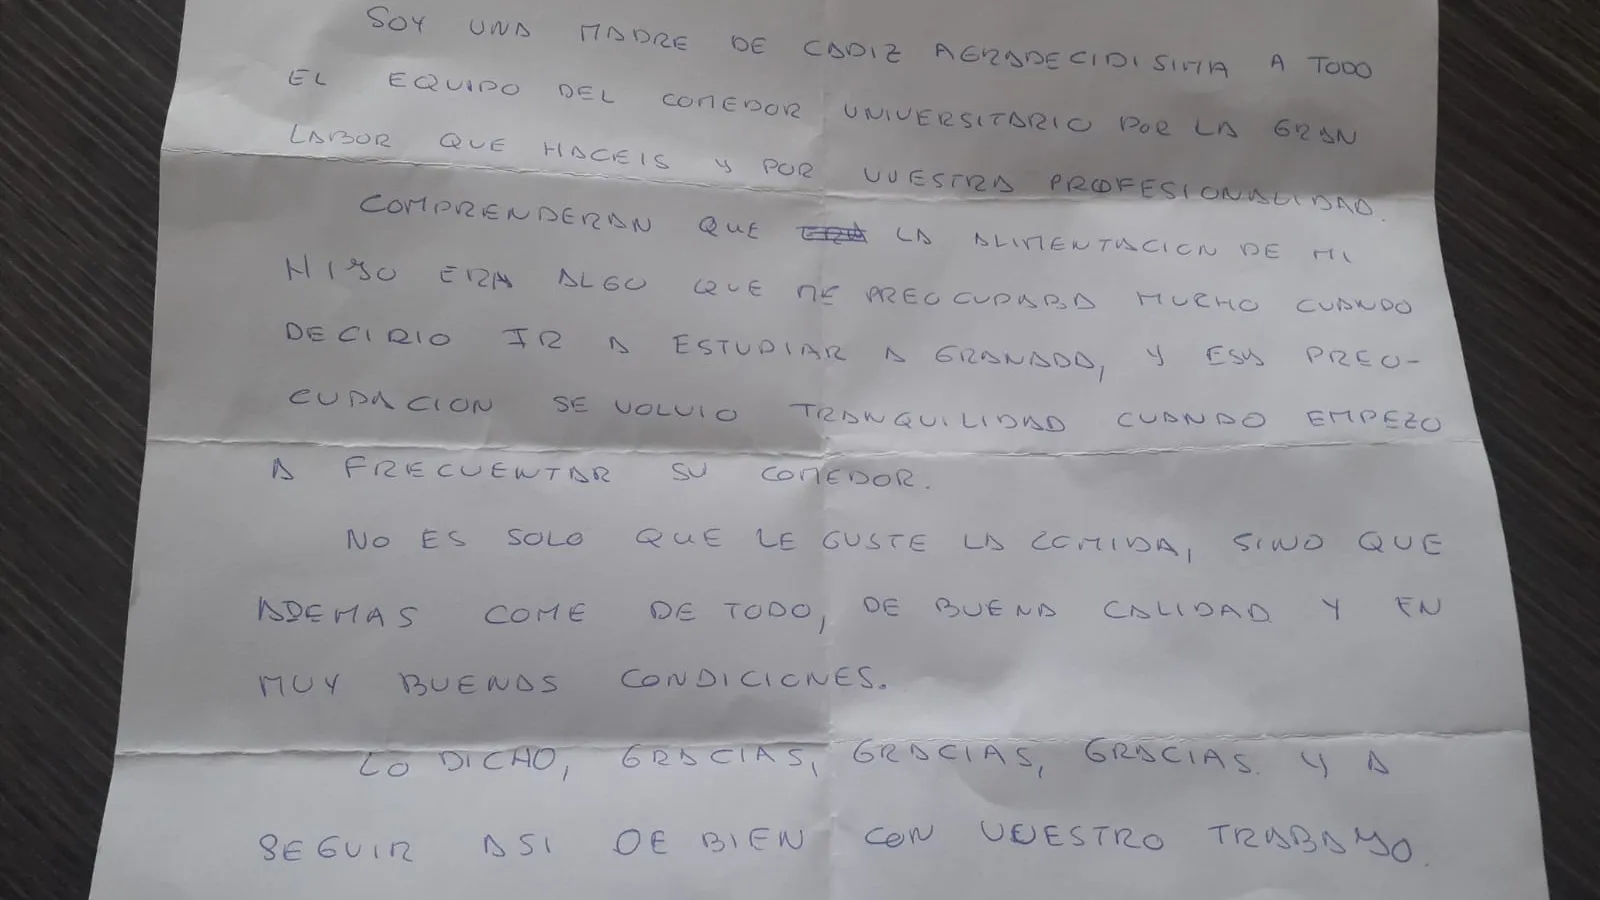 SOY UNA MADRE DE CADIZ AGRADECIDISIMA A TODO
EL EQUIPO DEL COMEDOR UNIVERSITARIO POR LA GRAN
LABOR QUE HACEIS Y POR VUESTRA PROFESIONALIDAD.
COMPRENDERAN QUE LA ALIMENTACION DE MI
HIJO ERA ALGO QUE ME PREOCUPABA MUCHO CUANDO
DECIDIO IR A ESTUDIAR A GRANADA, Y ESA PREO-
CUPACION SE VOLVIO TRANQUILIDAD CUANDO EMPEZO
A FRECUENTAR SU COMEDOR.
NO ES SOLO QUE LE GUSTE LA COMIDA, SINO QUE
ADEMAS COME DE TODO, DE BUENA CALIDAD Y EN
MUY BUENAS CONDICIONES.
LO DICHO, GRACIAS, GRACIAS, GRACIAS. Y A
SEGUIR ASI DE BIEN CON VUESTRO TRABAJO.